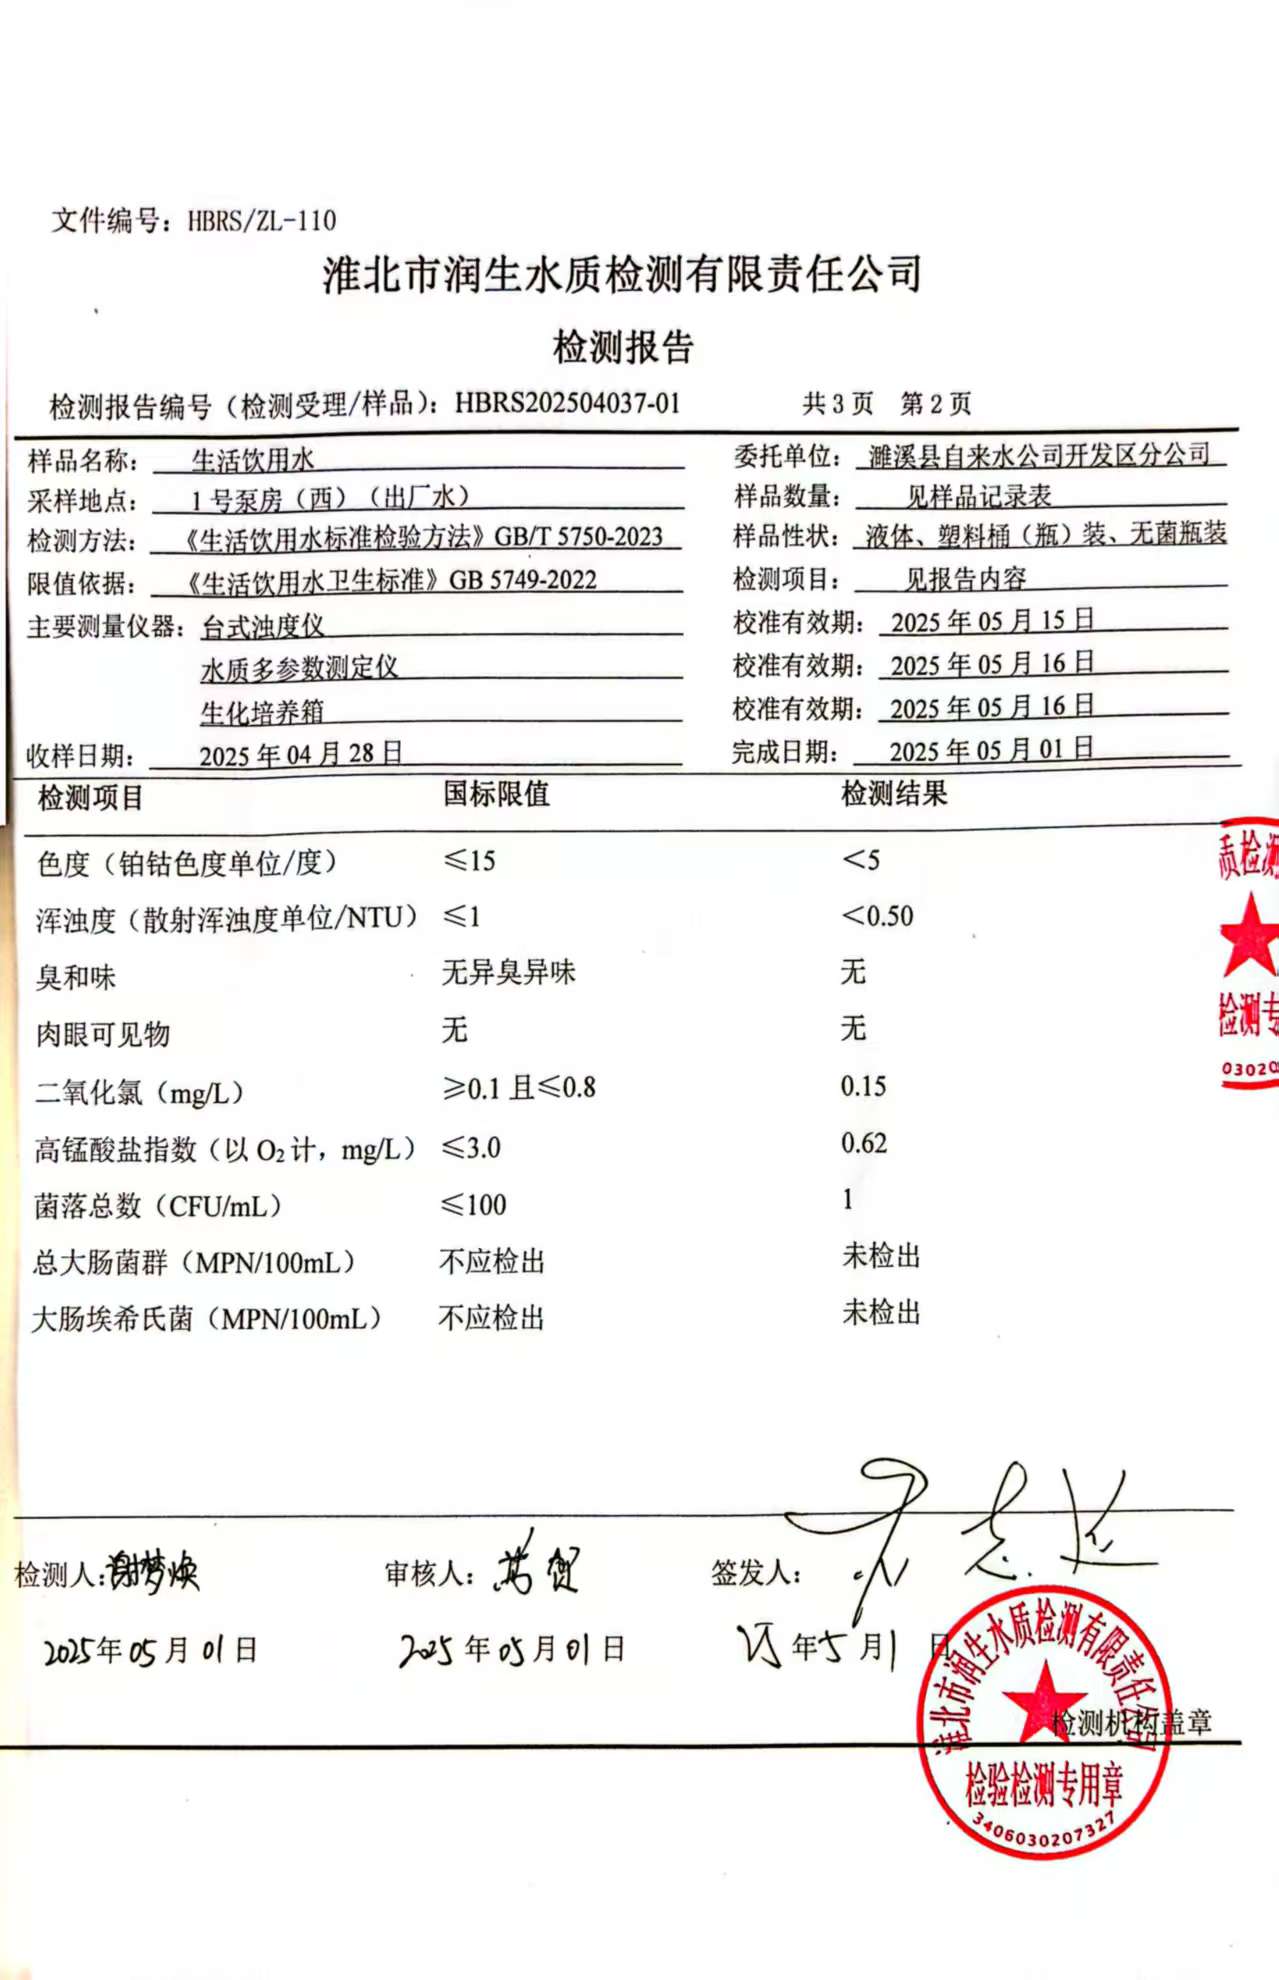 文件编号：HBRS/ZL-110
淮北市润生水质检测有限责任公司
检测报告
检测报告编号（检测受理/样品）：HBRS202504037-01 共 3 页 第 2 页
样品名称： 生活饮用水 委托单位： 濉溪县自来水公司开发区分公司
采样地点： 1 号泵房（西）（出厂水） 样品数量： 见样品记录表
检测方法： 《生活饮用水标准检验方法》GB/T 5750-2023 样品性状： 液体、塑料桶（瓶）装、无菌瓶装
限值依据： 《生活饮用水卫生标准》GB 5749-2022 检测项目： 见报告内容
主要测量仪器： 台式浊度仪 校准有效期： 2025 年 05 月 15 日
水质多参数测定仪 校准有效期： 2025 年 05 月 16 日
生化培养箱 校准有效期： 2025 年 05 月 16 日
收样日期： 2025 年 04 月 28 日 完成日期： 2025 年 05 月 01 日
检测项目 国标限值 检测结果
色度（铂钴色度单位/度） ≤15 <5
浑浊度（散射浑浊度单位/NTU） ≤1 <0.50
臭和味 无异臭异味 无
肉眼可见物 无 无
二氧化氯（mg/L） ≥0.1 且≤0.8 0.15
高锰酸盐指数（以 O₂ 计，mg/L） ≤3.0 0.62
菌落总数（CFU/mL） ≤100 1
总大肠菌群（MPN/100mL） 不应检出 未检出
大肠埃希氏菌（MPN/100mL） 不应检出 未检出
质检测
检测专
03020
检测人：谢梦焕 审核人： 签发人：
2025年 05 月 01 日 2025 年 05 月 01 日 25 年 5 月 1 日
淮北市润生水质检测有限责任公司
检测机构盖章
检验检测专用章
3406030207327